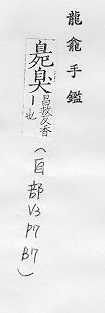 龍龕手鑑
臰臭昌救久香
丨也
(自部V3P7B7)